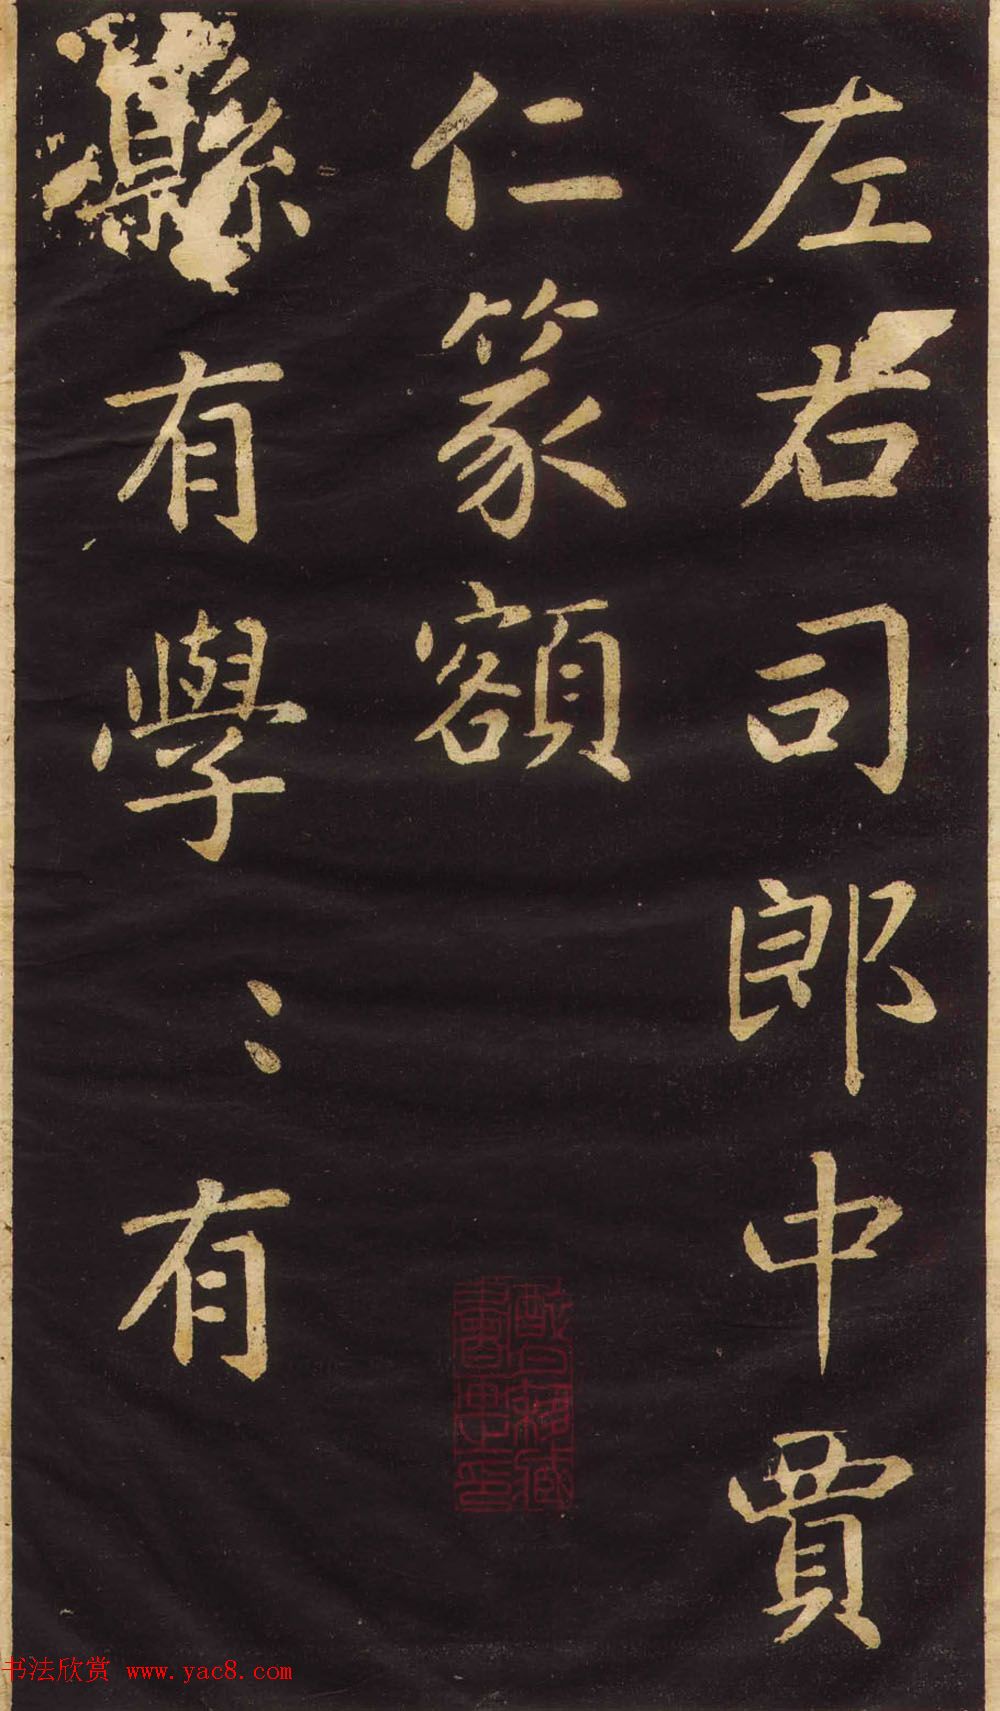 左右司郎中賈
仁篆額
縣有學〻有
书法欣赏 www.yac8.com